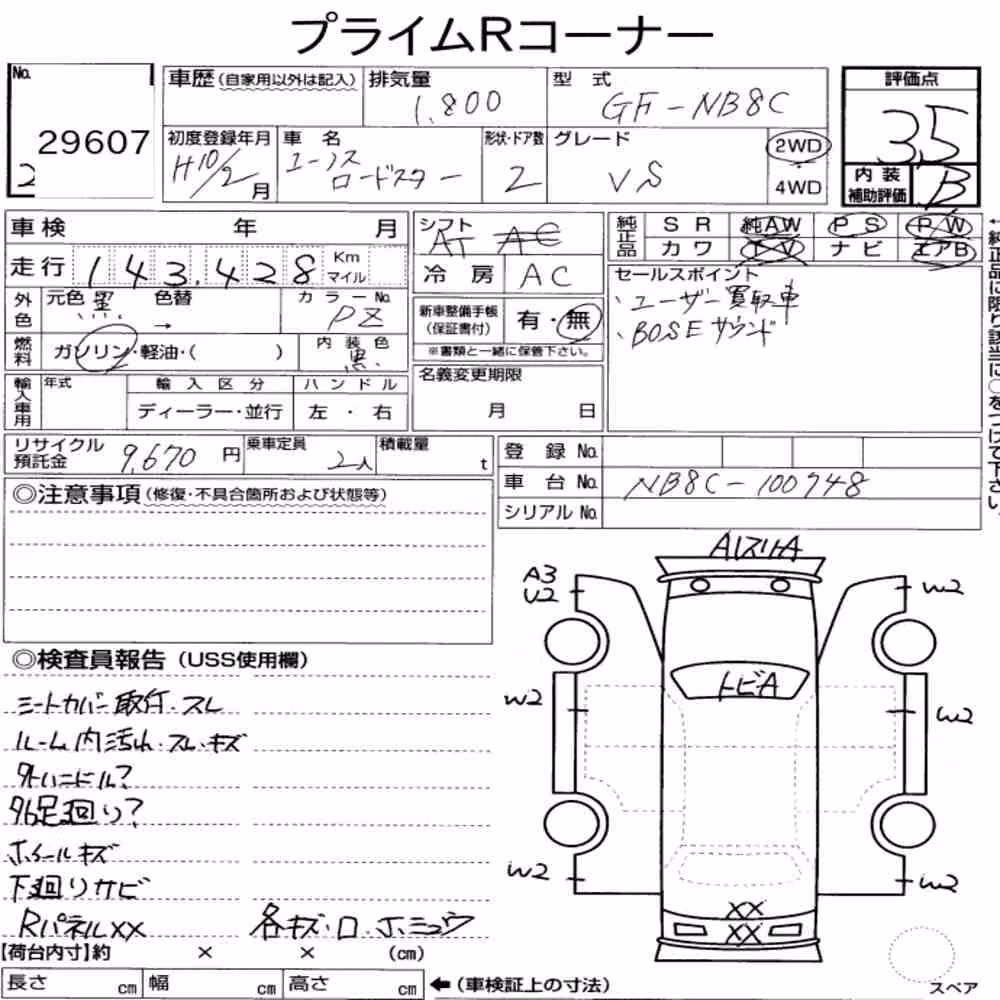 プライムRコーナー
No.
29607
2
車歴(自家用以外は記入)
排気量
1,800
型式
GF-NB8C
評価点
3.5
初度登録年月
H10/2月
車名
ユーノス
ロードスター
形状・ドア数
2
グレード
VS
2WD
・
4WD
内装
補助評価
B
車検 年 月
走行 143,428 Km
マイル
シフト
AT AC
冷房 AC
純正品
SR 純AW PS PW
カワ TV ナビ エアB
←純正品に限り該当に○をつけて下さい。
外色
元色 黒 色替 →
カラーNo.
PZ
燃料
ガソリン・軽油・( )
内装色
黒
新車整備手帳
(保証書付)
有・無
※書類と一緒に保管下さい。
セールスポイント
、ユーザー買取車
、BOSEサウンド
輸入車用
年式
輸入区分
ディーラー・並行
ハンドル
左・右
名義変更期限
月 日
リサイクル
預託金
9,670円
乗車定員
2人
積載量
t
登録No.
車台No. NB8C-100748
シリアルNo.
◎注意事項(修復・不具合箇所および状態等)
◎検査員報告(USS使用欄)
シートカバー取付・スレ
ルーム内汚れ・スレ・キズ
外ハンドル?
外足廻り?
ホイールキズ
下廻りサビ
RパネルXX
各キズ・
AスリA
A3
U2
W2
トビA
W2
W2
W2
W2
XX
XX
【荷台内寸】約 × × (cm)
長さ cm 幅 cm 高さ cm
←(車検証上の寸法)
スペア